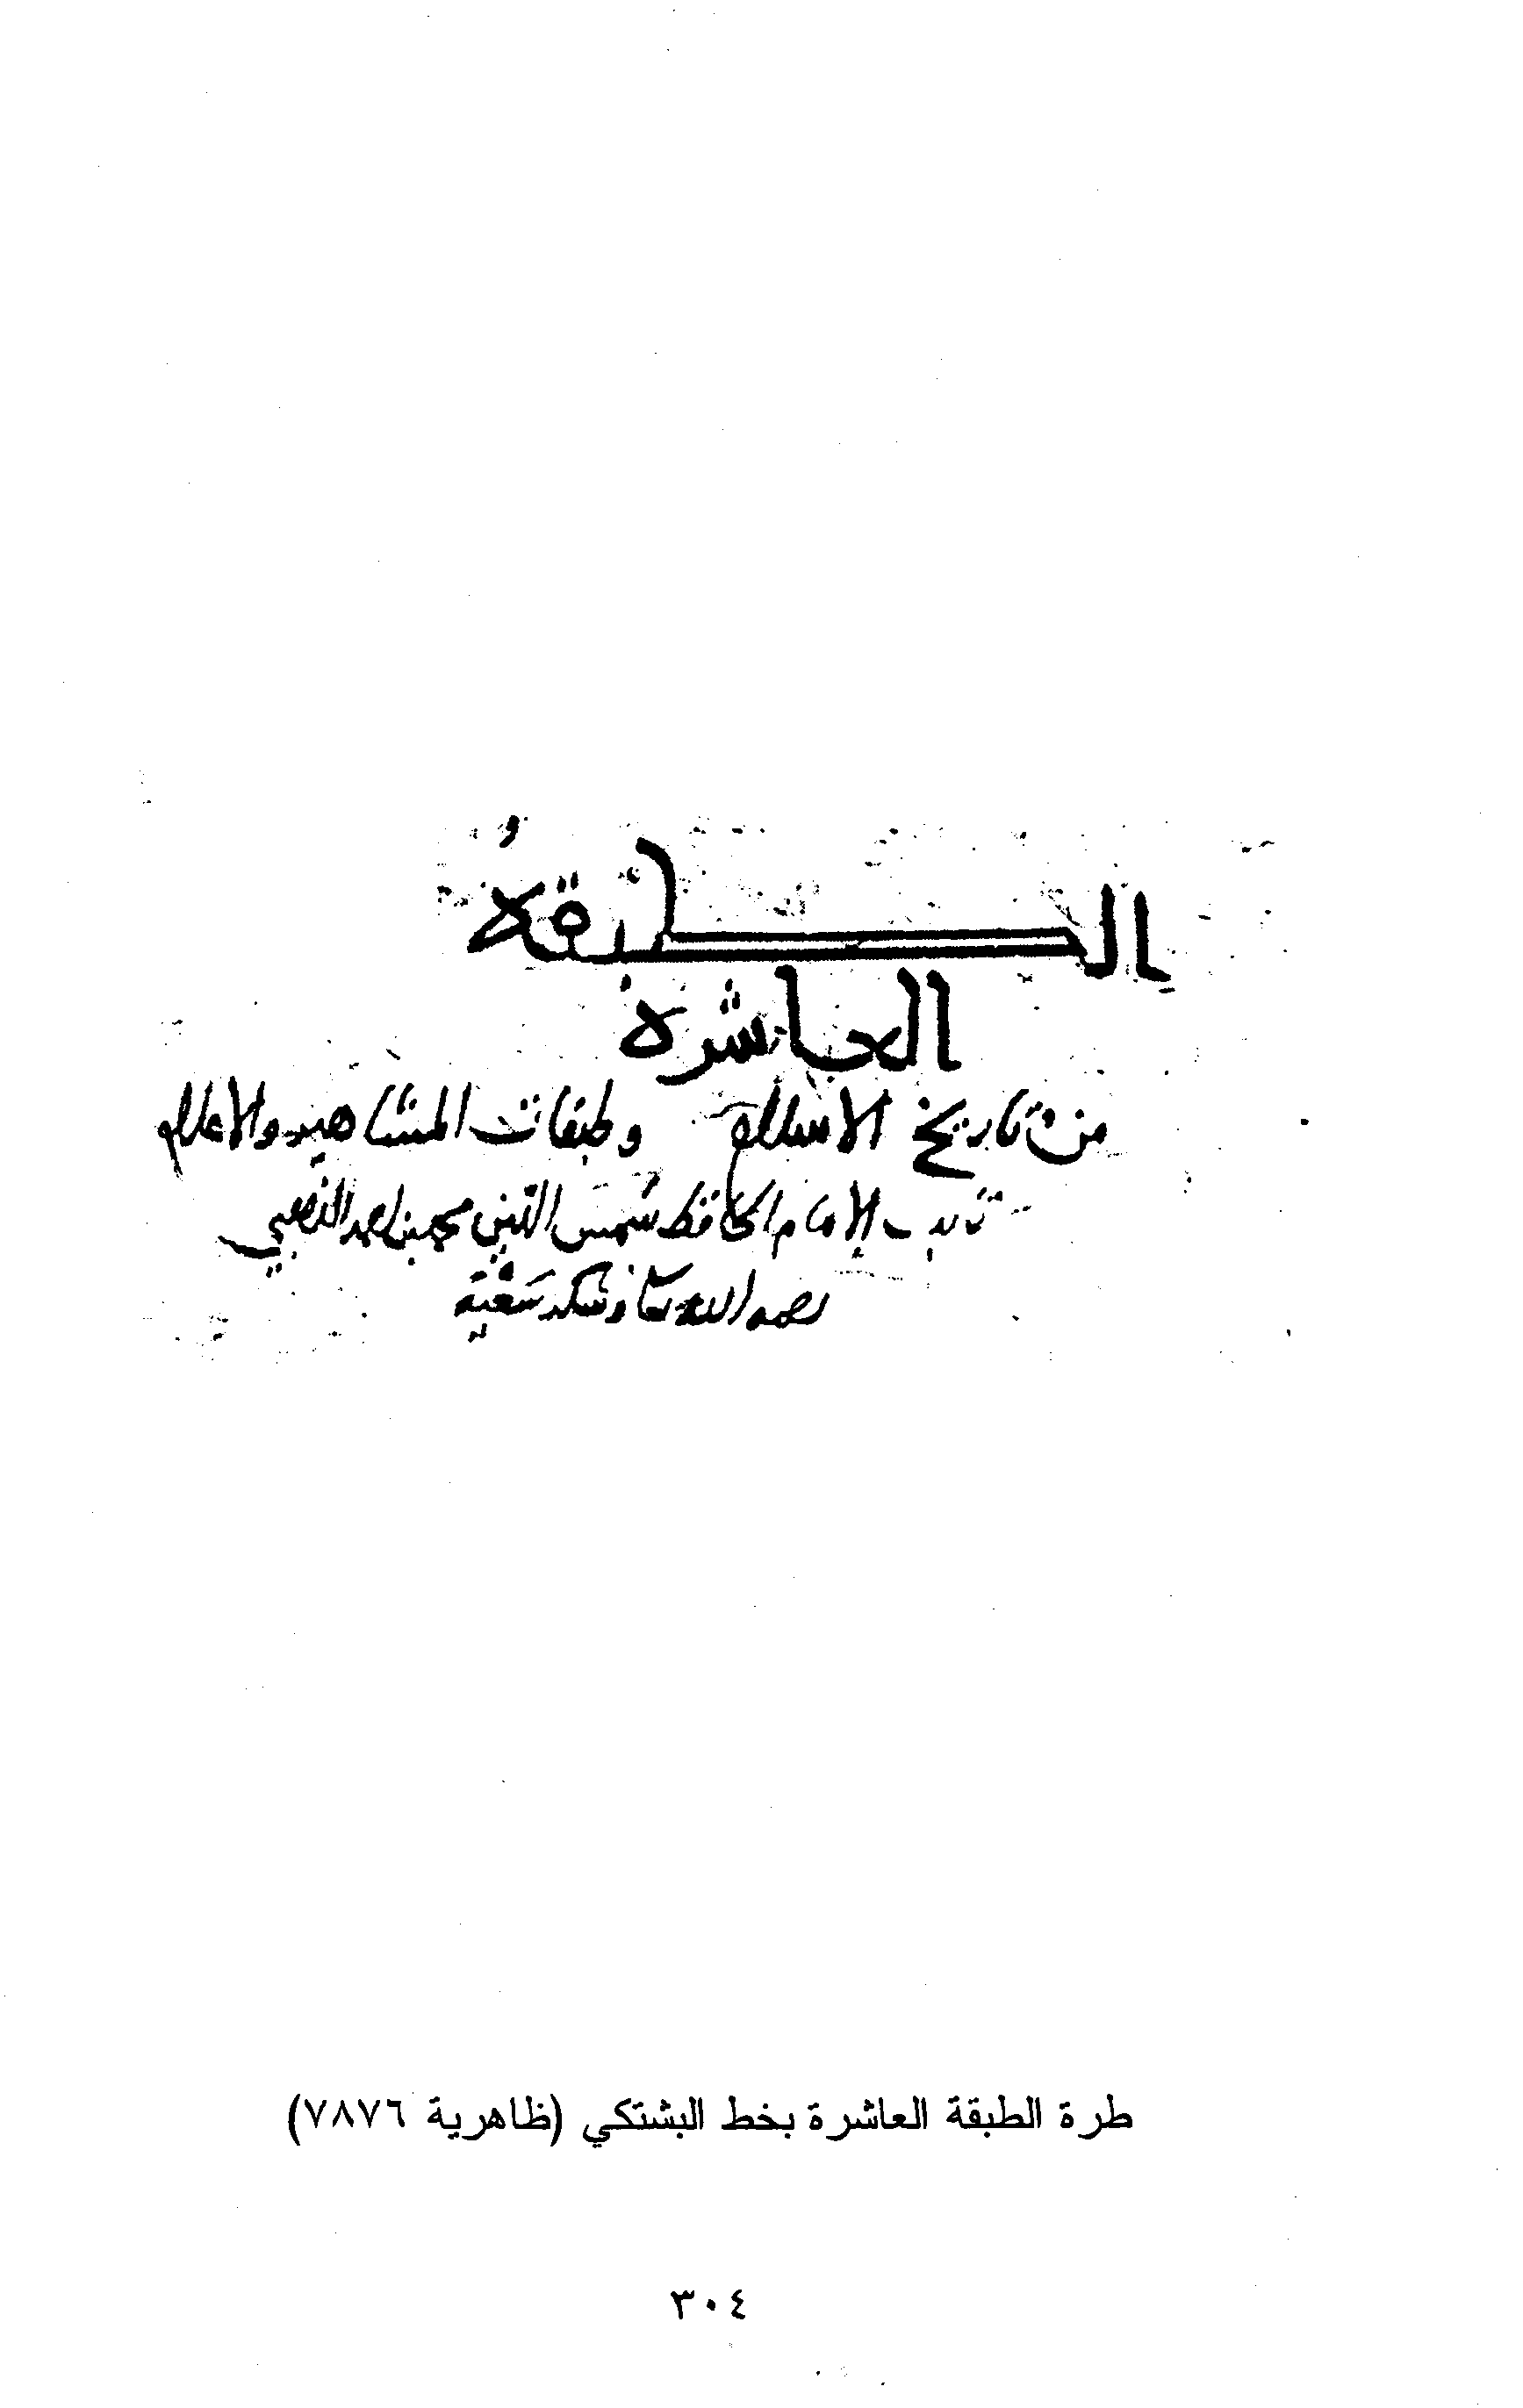 الطبقة
العاشرة
من تاريخ الاسلام وطبقات المشاهير والاعلام
تاليف الامام الحافظ شمس الدين محمد بن احمد الذهبي
رحمه الله تعالى وشكر سعيه
طرة الطبقة العاشرة بخط البشتكي (ظاهرية ٧٨٧٦)
٣٠٤